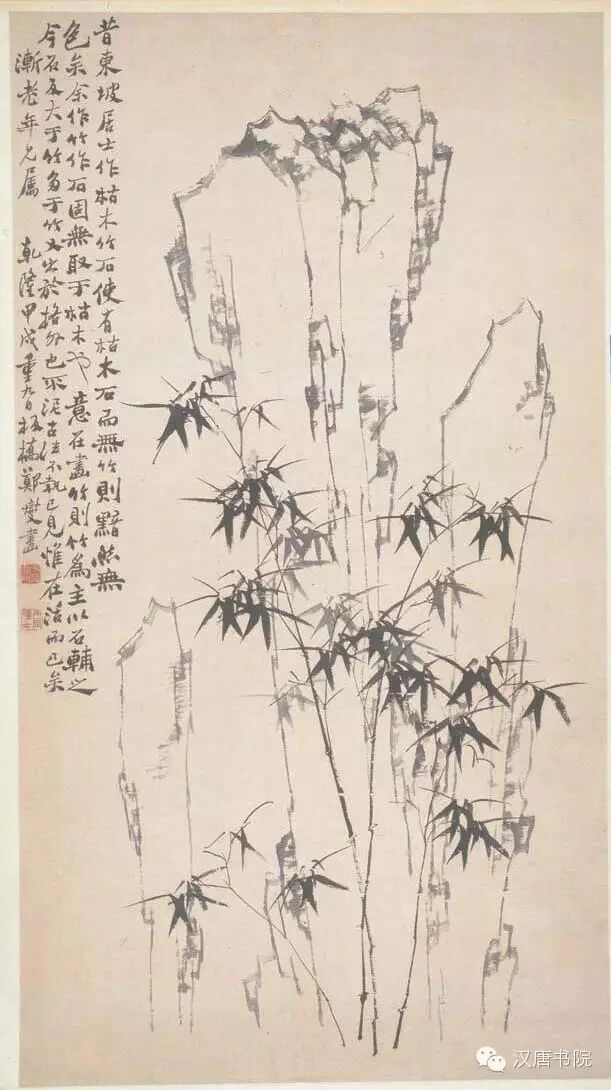 昔東坡居士作枯木竹石使有枯木石而無竹則黯然無
色矣余作竹作石固無取于枯木也意在畫竹則竹為主以石輔之
今石反大于竹多于竹又出於格外也不泥古法不執己見惟在活而已矣
漸老年兄屬 乾隆甲戌重九日板橋鄭燮畫
汉唐书院